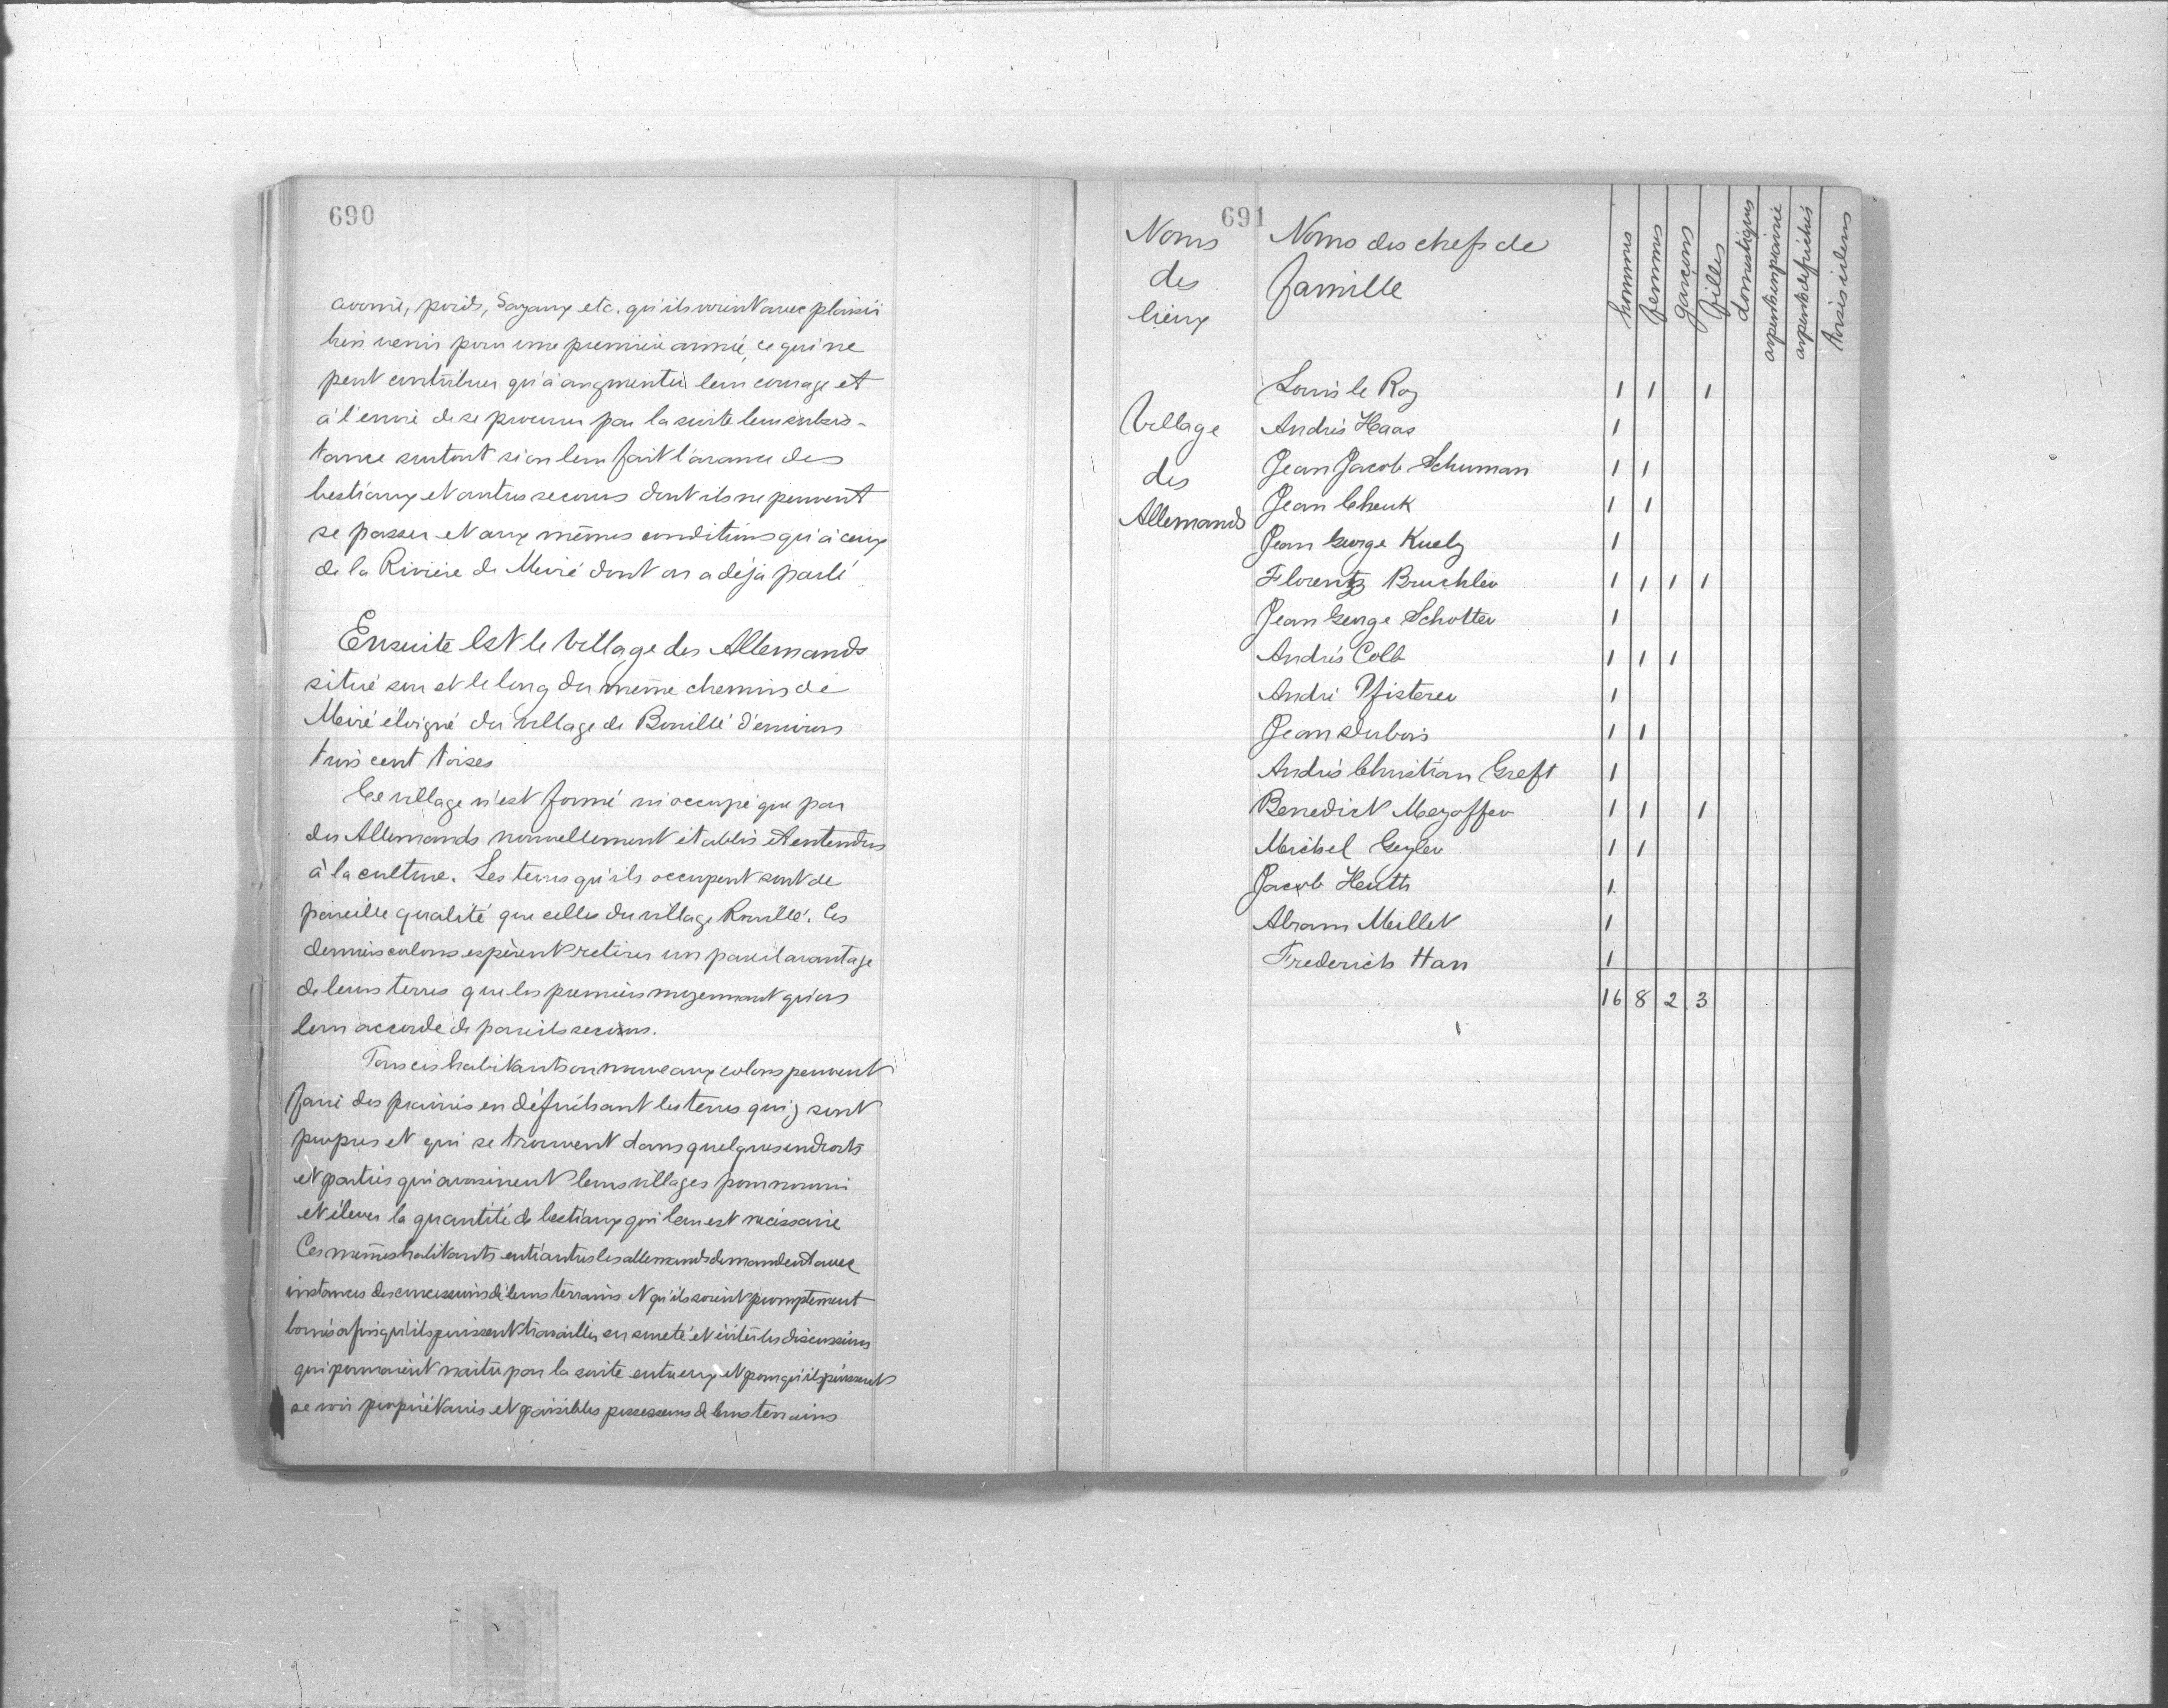 690
avoine, poids, Sayaux etc. qu'ils voient avec plaisir
bien venir pour une première année, ce qui ne
peut contribuer qu'à augmenter leur courage et
à l'envie de se procurer par la suite leur subsis-
tance surtout si on leur fait l'avance des
bestiaux et autres secours dont ils ne peuvent
se passer et aux mêmes conditions qu'à ceux
de la Rivière de Meiré dont on a déjà parlé
Ensuite est le village des Allemands
situé sur et le long du même chemin de
Meiré éloigné du village de Bouillé d'environ
trois cent toises
Ce village n'est formé ni occupé que par
des Allemands nouvellement établis et entendus
à la culture. Les terres qu'ils occupent sont de
pareille qualité que celles du village Rouillé. Ces
derniers colons espèrent retirer un pareil avantage
de leurs terres que les premiers moyennant qu'on
leur accorde de pareils secours.
Tous ces habitants ou nouveaux colons peuvent
faire des prairies en défrichant les terres qui y sont
propres et qui se trouvent dans quelques endroits
et parties qui avoisinent leurs villages pour nourrir
et élever la quantité de bestiaux qui leur est nécessaire
Ces mêmes habitants entr'autres les allemands demandent avec
instances des concessions de leurs terrains et qu'ils soient promptement
bornés afin qu'ils puissent travailler en sureté et éviter les discussions
qui pourraient naitre par la suite entre eux et pour qu'ils puissent
se voir propriétaires et paisibles possesseurs de leurs terrains
691
Noms des lieux
Noms des chefs de famille
hommes femmes garçons filles domestiques arpents en prairie arpents défrichés toises idem
Village des Allemands
Louis le Roy 1 1 1
Andrés Haas 1
Jean Jacob Schuman 1 1
Jean Chenk 1 1
Jean George Kuely 1
Florentz Bruchler 1 1 1 1
Jean George Schotter 1
Andrés Colb 1 1 1
André Pfisterer 1
Jean Dubois 1 1
Andrés Christian Greft 1
Benedict Meyoffer 1 1 1
Michel Geyler 1 1
Jacob Heuth 1
Abram Millet 1
Frederich Han 1
16 8 2 3